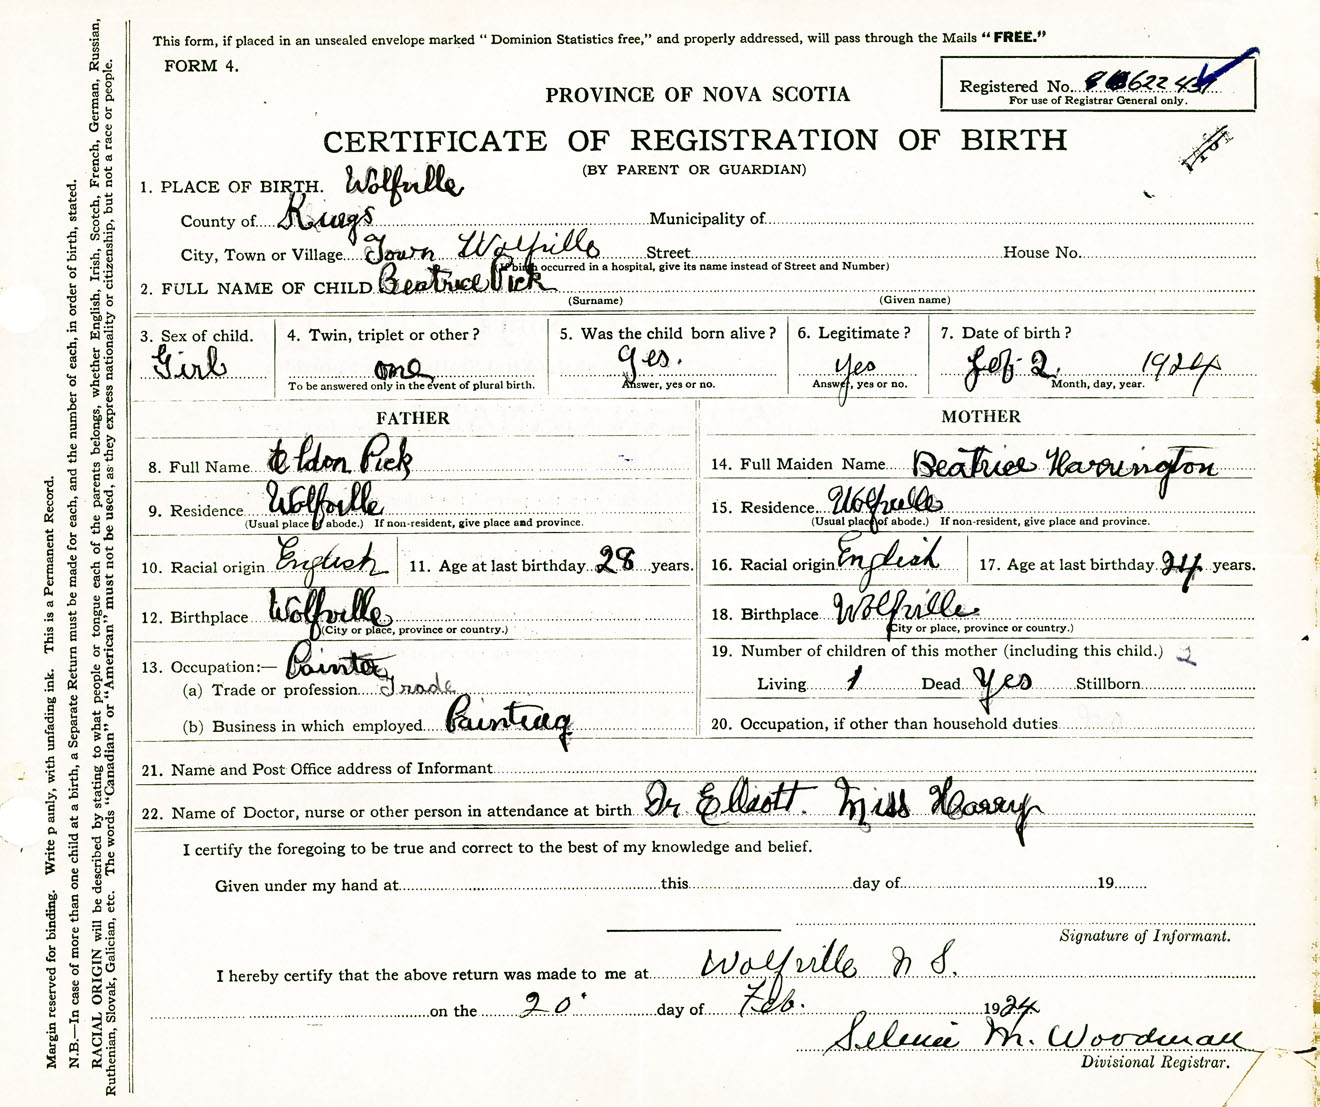 This form, if placed in an unsealed envelope marked “ Dominion Statistics free,” and properly addressed, will pass through the Mails “ FREE.”
FORM 4.
Registered No.
For use of Registrar General only.
PROVINCE OF NOVA SCOTIA
CERTIFICATE OF REGISTRATION OF BIRTH
(BY PARENT OR GUARDIAN)
1. PLACE OF BIRTH. Wolfville
County of Kings Municipality of
City, Town or Village Town Wolfville Street House No.
(If birth occurred in a hospital, give its name instead of Street and Number)
2. FULL NAME OF CHILD Beatrice Pick
(Surname) (Given name)
3. Sex of child. 4. Twin, triplet or other? 5. Was the child born alive? 6. Legitimate? 7. Date of birth?
Girl one yes. yes Feb 2. 1924
To be answered only in the event of plural birth. Answer, yes or no. Answer, yes or no. Month, day, year.
FATHER MOTHER
8. Full Name Eldon Pick 14. Full Maiden Name Beatrice Harrington
9. Residence Wolfville 15. Residence Wolfville
(Usual place of abode.) If non-resident, give place and province. (Usual place of abode.) If non-resident, give place and province.
10. Racial origin English 11. Age at last birthday 28 years. 16. Racial origin English 17. Age at last birthday 24 years.
12. Birthplace Wolfville 18. Birthplace Wolfville
(City or place, province or country.) (City or place, province or country.)
13. Occupation:— Painter 19. Number of children of this mother (including this child.) 2
(a) Trade or profession Trade Living 1 Dead Yes Stillborn
(b) Business in which employed Painting 20. Occupation, if other than household duties
21. Name and Post Office address of Informant
22. Name of Doctor, nurse or other person in attendance at birth Dr Elliott. Miss Harry
I certify the foregoing to be true and correct to the best of my knowledge and belief.
Given under my hand at this day of 19
Signature of Informant.
I hereby certify that the above return was made to me at Wolfville N S.
on the 20 day of Feb. 1924
Selenie M. Woodman
Divisional Registrar.
Margin reserved for binding. Write p ainly, with unfading ink. This is a Permanent Record.
N.B.—In case of more than one child at a birth, a Separate Return must be made for each, and the number of each, in order of birth, stated.
RACIAL ORIGIN will be described by stating to what people or tongue each of the parents belongs, whether English, Irish, Scotch, French, German, Russian,
Ruthenian, Slovak, Galician, etc. The words “Canadian” or “American” must not be used, as they express nationality or citizenship, but not a race or people.